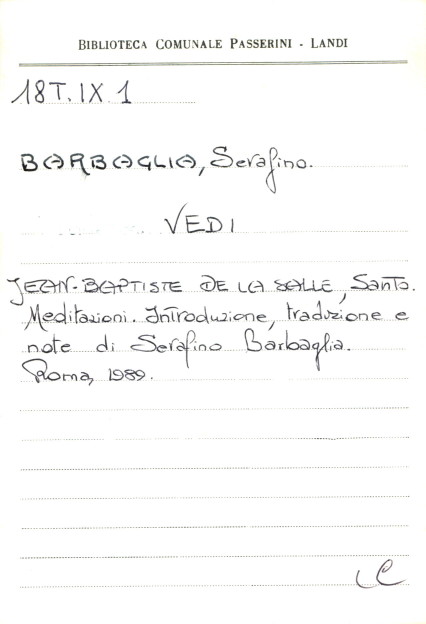 BIBLIOTECA COMUNALE PASSERINI - LANDI
18T.IX.1
BARBAGLIA, Serafino.
VEDI
JEAN-BAPTISTE DE LA SALLE, Santo.
Meditazioni. Introduzione, traduzione e
note di Serafino Barbaglia.
Roma, 1989.